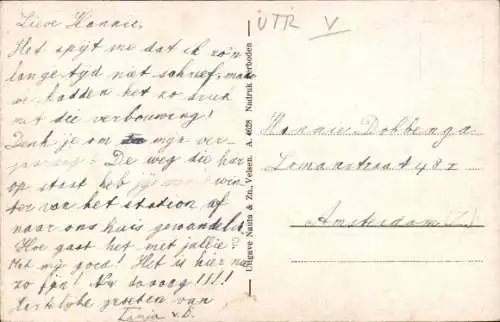 Lieve Hannie,
Het spijt me dat ik zo'n
lange tijd niet schreef, maar
we hadden het zo druk
met die verbouwing!
Denk je om mijn ver
jaardag? De weg die hier
op staat heb jij van't win
ter van het station af
naar ons huis gewandeld!
Hoe gaat het met jullie?
Met mij goed! Het is hier nu
zo fijn! Nu daaag!!!!
Hartelijke groeten van
Tania v. D.
Uitgave Nauta & Zn., Velsen. A. 4628 Nadruk verboden
UTR V
Hannie Dobbenga
Lomanstraat 48 I
Amsterdam (Z.)